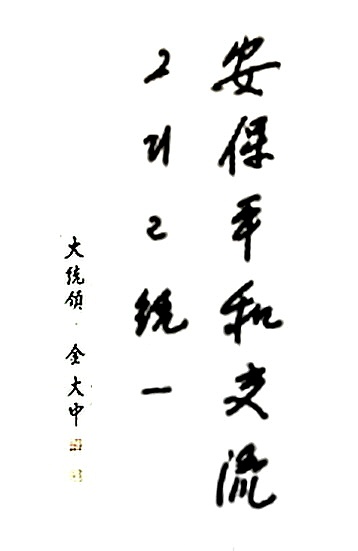 安保平和交流
그리고統一
大統領 金大中